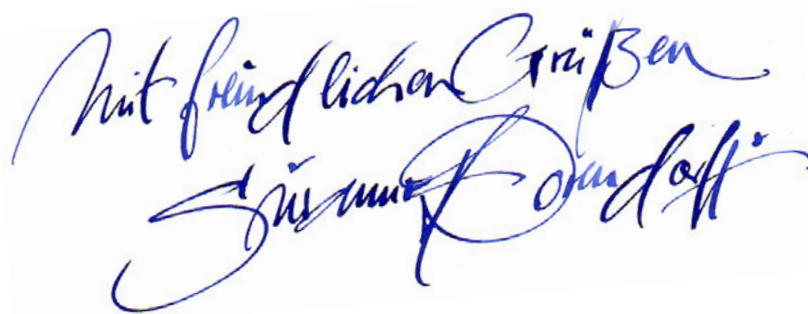 Mit freundlichen Grüßen
Susanne Dorendorff